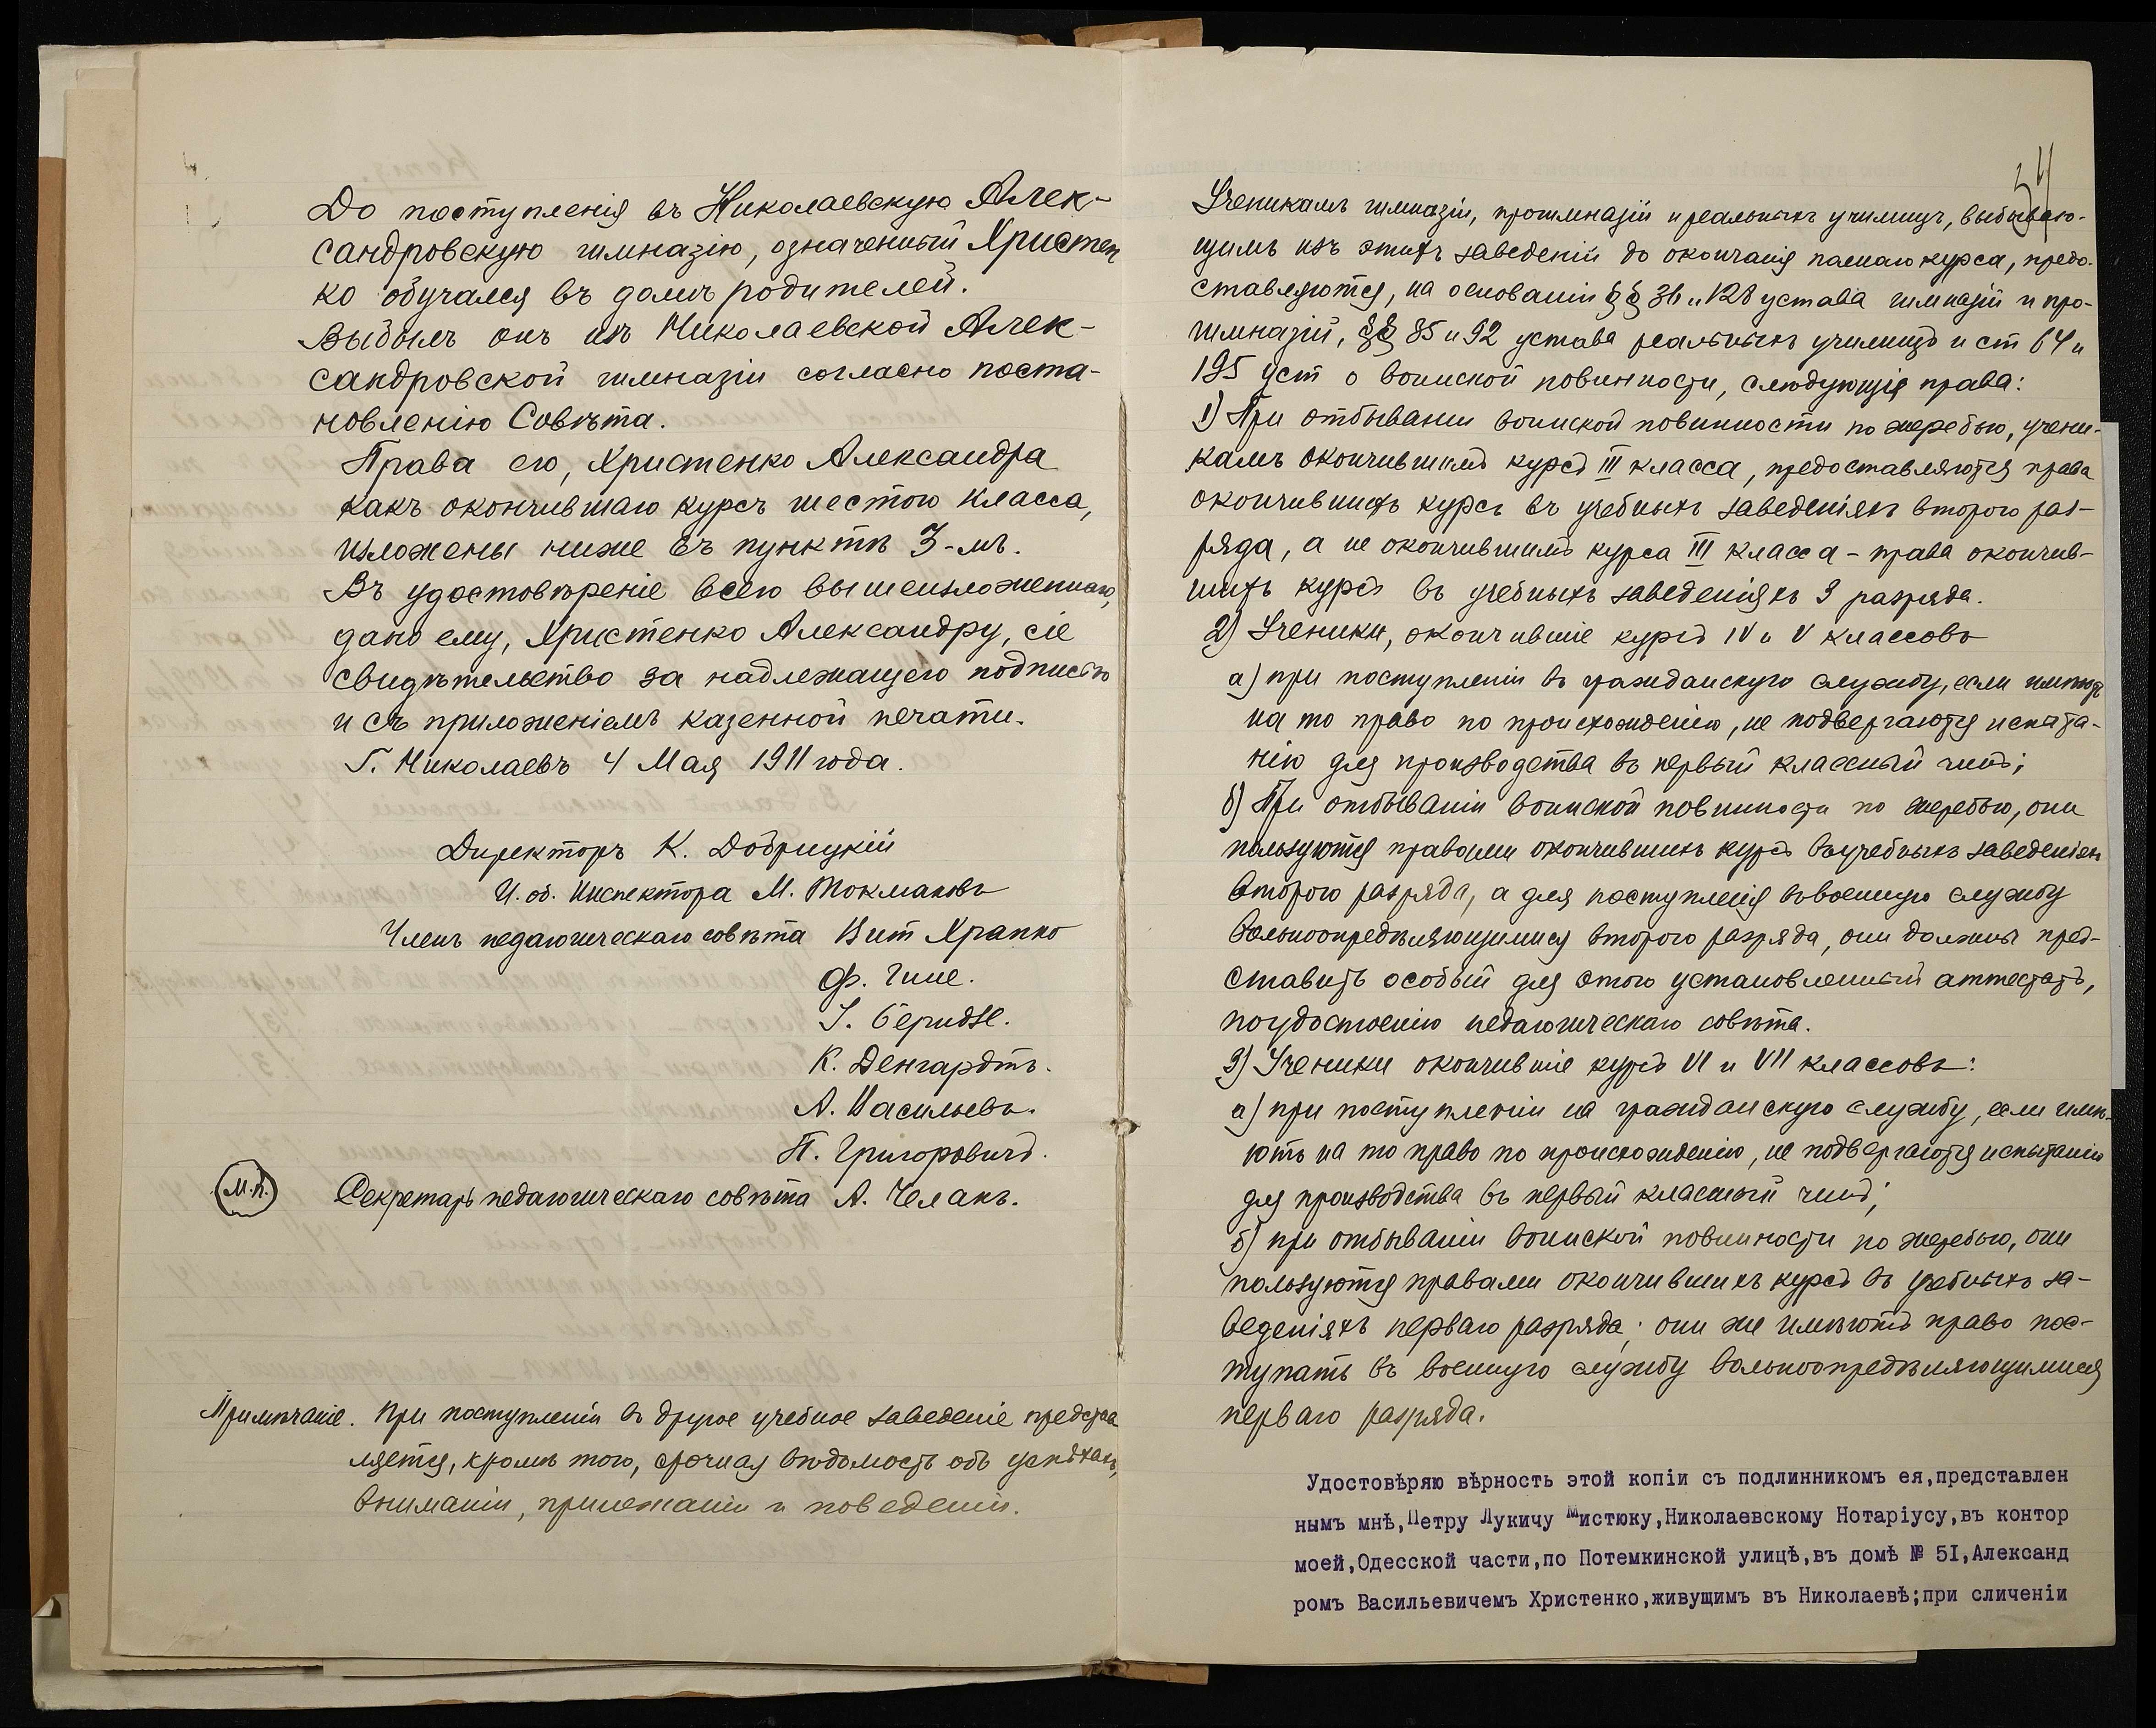 До поступленія въ Николаевскую Алек-
сандровскую гимназію, означенный Христен
ко обучался въ домѣ родителей.
Выбылъ онъ изъ Николаевской Алек-
сандровской гимназіи согласно поста-
новленію Совѣта.
Права его, Христенко Александра
какъ окончившаго курсъ шестого класса,
изложены ниже въ пунктѣ 3-мъ.
Въ удостовѣреніе всего вышеизложеннаго,
дано ему, Христенко Александру, сіе
свидѣтельство за надлежащего подписью
и съ приложеніемъ казенной печати.
Г. Николаевъ 4 Мая 1911 года.
Директоръ К. Добрицкій
И. об. Инспектора М. Токмаковъ
Членъ педагогическаго совѣта Вит Храпко
Ф. Гине.
І. Беридзе.
К. Денгардтъ.
А. Васильевъ.
П. Григоровичъ.
М.п. Секретарь педагогическаго совѣта А. Челакъ.
Примѣчаніе. При поступленіи въ другое учебное заведеніе предста
ляется, кромѣ того, срочная вѣдомость объ успѣхахъ,
вниманіи, прилежаніи и поведеніи.
34
Ученикамъ гимназіи, прогимназіи и реальныхъ училищъ, выбываю-
щимъ изъ этихъ заведеній до окончанія полнаго курса, предо-
ставляются, на основаніи §§ 36 и 128 устава гимназій и про-
гимназій, §§ 85 и 92 устава реальныхъ училищъ и ст 64 и
195 уст о воинской повинности, слѣдующія права:
1) При отбываніи воинской повинности по жеребью, учени-
камъ окончившимъ курсъ III класса, предоставляются права
окончившихъ курсъ въ учебныхъ заведеніяхъ второго раз-
ряда, а не окончившимъ курса III класса - права окончив-
шихъ курсъ въ учебныхъ заведеніяхъ 3 разряда.
2) Ученики, окончившіе курсъ IV и V классовъ
а) при поступленіи въ гражданскую службу, если имѣютъ
на то право по происхожденію, не подвергаются испыта-
нію для производства въ первый классный чинъ;
б) При отбываніи воинской повинности по жеребью, они
пользуются правами окончившихъ курсъ въ учебныхъ заведеніях
второго разряда, а для поступленія въ военную службу
вольноопредѣляющимися второго разряда, они должны пред-
ставить особый для этого установленный аттестатъ,
по удостоенію педагогическаго совѣта.
3) Ученики окончившіе курсъ VI и VII классовъ:
а) при поступленіи на гражданскую службу, если имѣ-
ютъ на то право по происхожденію, не подвергаются испытанію
для производства въ первый классный чинъ;
б) при отбываніи воинской повинности по жеребью, они
пользуются правами окончившихъ курсъ въ учебныхъ за-
веденіяхъ перваго разряда; они же имѣютъ право пос-
тупать въ военную службу вольноопредѣляющимися
перваго разряда.
Удостовѣряю вѣрность этой копіи съ подлинникомъ ея,представлен
нымъ мнѣ,Петру Лукичу Мистюку,Николаевскому Нотаріусу,въ контор
моей,Одесской части,по Потемкинской улицѣ,въ домѣ № 5I,Александ
ромъ Васильевичемъ Христенко,живущимъ въ Николаевѣ;при сличеніи